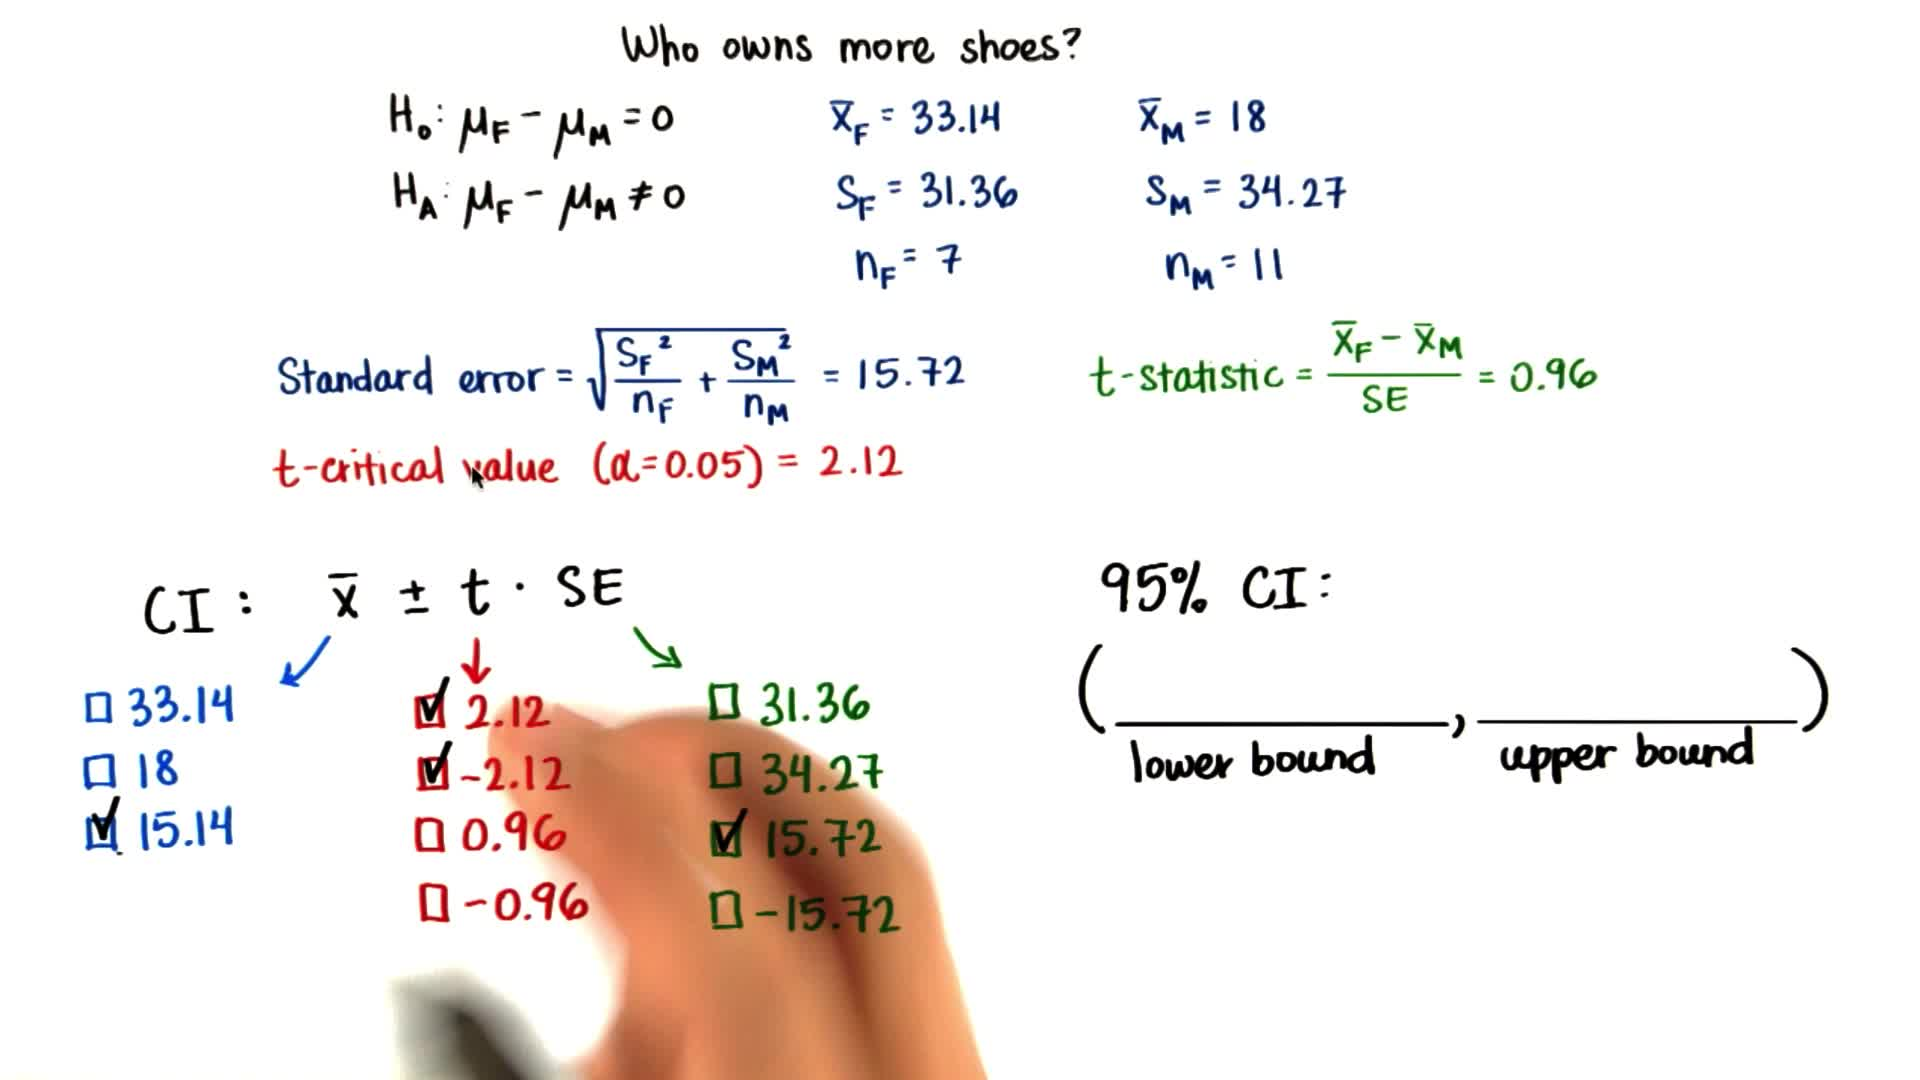 Who owns more shoes?
H₀: μF - μM = 0
HA: μF - μM ≠ 0
x̄F = 33.14
SF = 31.36
nF = 7
x̄M = 18
SM = 34.27
nM = 11
Standard error = √(SF²/nF + SM²/nM) = 15.72
t-statistic = (x̄F - x̄M)/SE = 0.96
t-critical value (α=0.05) = 2.12
CI: x̄ ± t · SE
33.14
18
15.14
2.12
-2.12
0.96
-0.96
31.36
34.27
15.72
-15.72
95% CI:
( , )
lower bound
upper bound